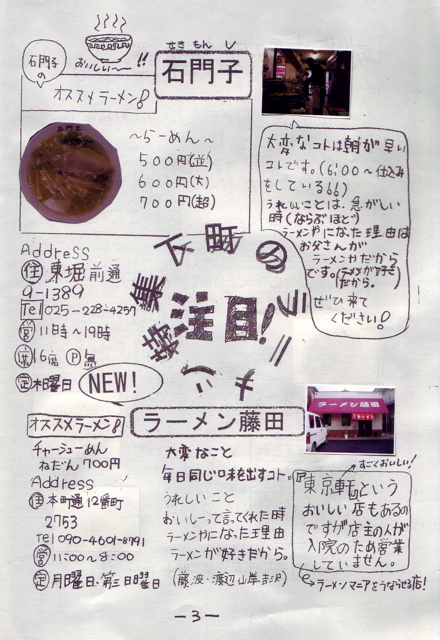 石門子の
おいしい〜!!
せきもんし
石門子
オススメラーメン8
〜らーめん〜
500円(並)
600円(大)
700円(超)
大変なコトは朝が早い
コトです。(6:00〜仕込み
をしている
うれしいことは、忙がしい
時(ならぶほど)
ラーメンやになった理由は
お父さんが
ラーメンやだから
です。(ラーメンが好き
だから。)
ぜひ来て
ください!
Address
住東堀前通
9-1389
Tel 025-228-4257
営11時〜19時
席16席 P無
定木曜日
下町の
ラーメン
特集
注目!
NEW!
オススメラーメン8
チャーシューめん
ねだん700円
Address
住本町通12番町
2753
Tel 090-4601-8991
営11:00〜8:00
定月曜日・第三日曜日
ラーメン藤田
ラーメン藤田
大変なこと
毎日同じ味を出すコト。
うれしいこと
おいしーって言ってくれた時
ラーメンやになった理由
ラーメンが好きだから。
(藤波・渡辺・山岸・吉沢)
すごくおいしい!
『東京軒』という
おいしい店もあるの
ですが店主の人が
入院のため営業
していません。
ラーメンマニアをうならせる店!
-3-